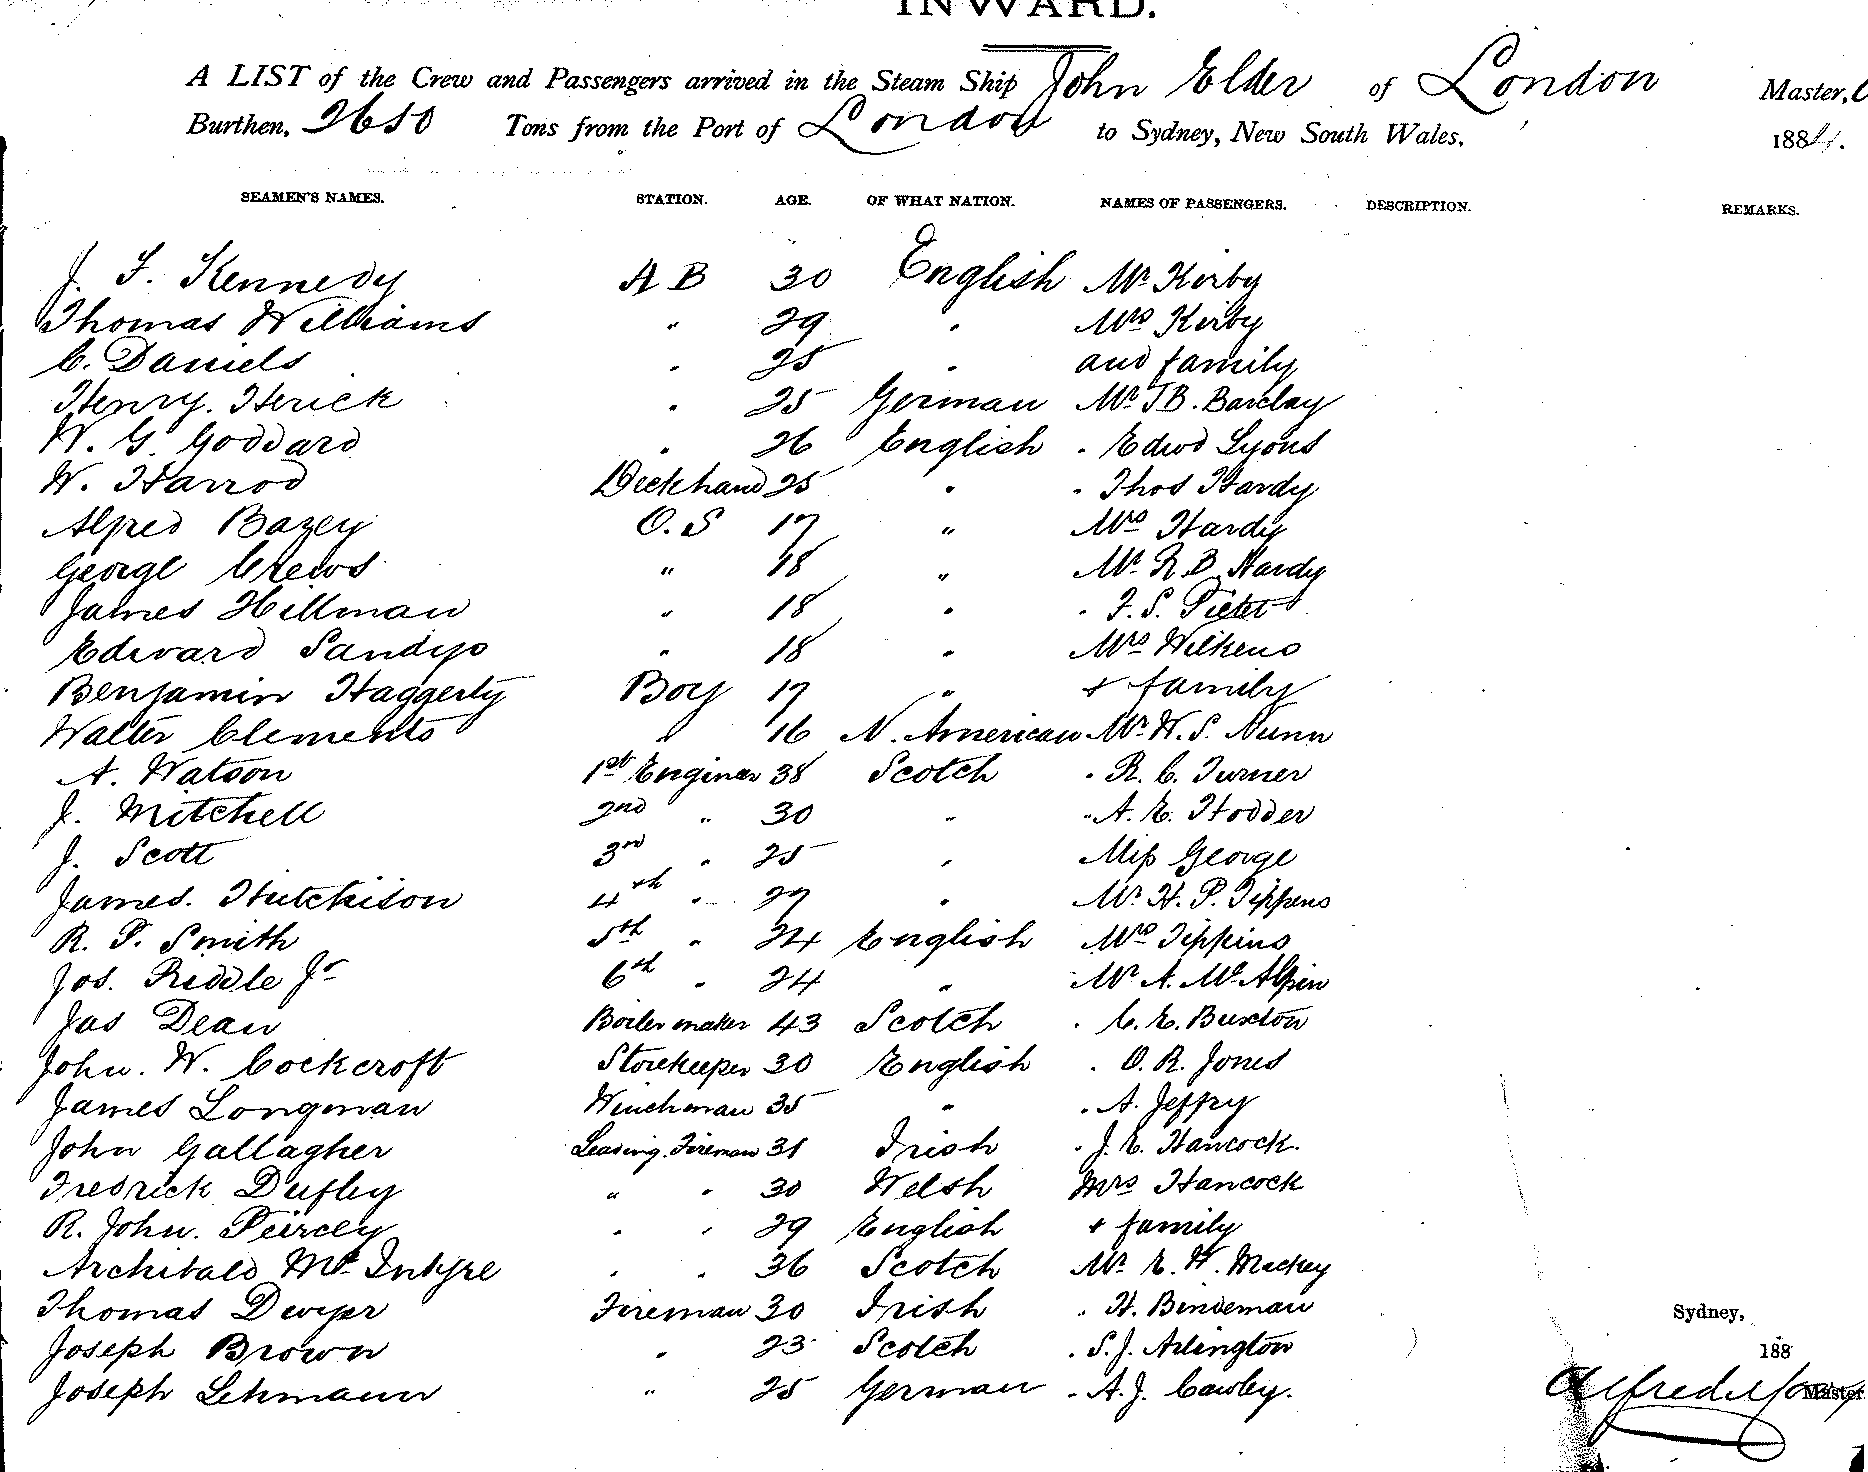 INWARD.
A LIST of the Crew and Passengers arrived in the Steam Ship John Elder of London Master,
Burthen, 2650 Tons from the Port of London to Sydney, New South Wales, 188
SEAMEN'S NAMES. STATION. AGE. OF WHAT NATION. NAMES OF PASSENGERS. DESCRIPTION. REMARKS.
J. F. Kennedy A B 30 English Mr Kirby
Thomas Williams " 29 " Mrs Kirby
C. Daniels " 25 " and family
Henry. Herick " 25 German Mr J B. Barclay
W. G. Goddard " 26 English " Edwd Lyons
W. Harrod Deckhand 25 " " Thos Hardy
Alfred Bazey O.S 17 " Mrs Hardy
George Crews " 18 " Mr R B Hardy
James Hillman " 18 " " F. S.
Edward Sandys " 18 " Mrs Wilkens
Benjamin Haggerty Boy 17 " + family
Walter Clements " 16 N. American Mr W. S. Nunn
A. Watson 1st Engineer 38 Scotch " R. C. Turner
J. Mitchell 2nd " 30 " " A. E. Hodder
J. Scott 3rd " 25 " Miss George
James. Hutchison 4th " 27 " Mr H. P. Tippens
R. T. Smith 5th " 24 English Mrs Tippins
Jos. Riddle Jr 6th " 24 " Mr A. McAlpin
Jas Dean Boilermaker 43 Scotch " C. E. Buxton
John. W. Cockcroft Storekeeper 30 English " O. R. Jones
James Longman Winchman 35 " " A. Jeffry
John Gallagher Leading. Fireman 31 Irish " J. E. Hancock.
Fredrick Dufley " " 30 Welsh Mrs Hancock
R. John. Peircey " " 29 English + family
Archibald McIntyre " " 36 Scotch Mr E. H. Mackey
Thomas Dwyer Fireman 30 Irish " H. Bindeman
Joseph Brown " 23 Scotch " S. J. Arlington
Joseph Lehmann " 25 German " A. J. Cawley.
Sydney,
188
Alfred Master